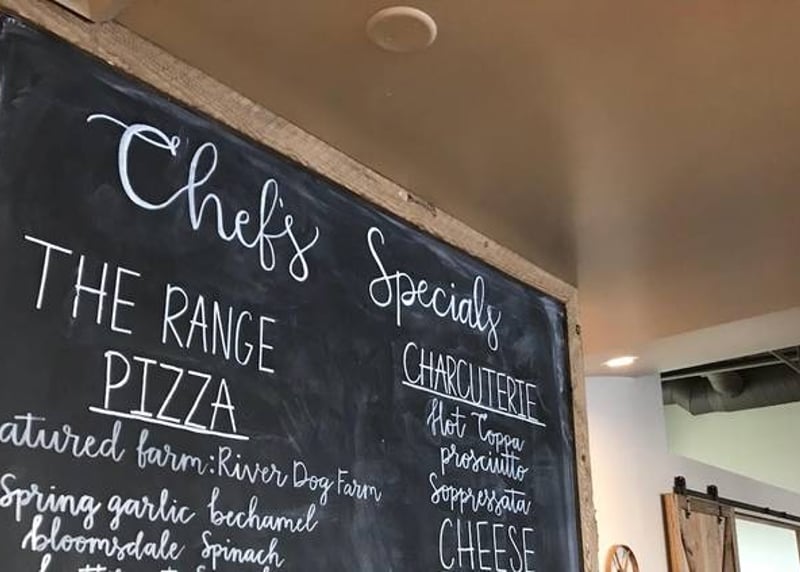 Chef's Specials
THE RANGE
PIZZA
atured farm: River Dog Farm
Spring garlic bechamel
bloomsdale Spinach
CHARCUTERIE
Hot Coppa
prosciutto
Soppressata
CHEESE